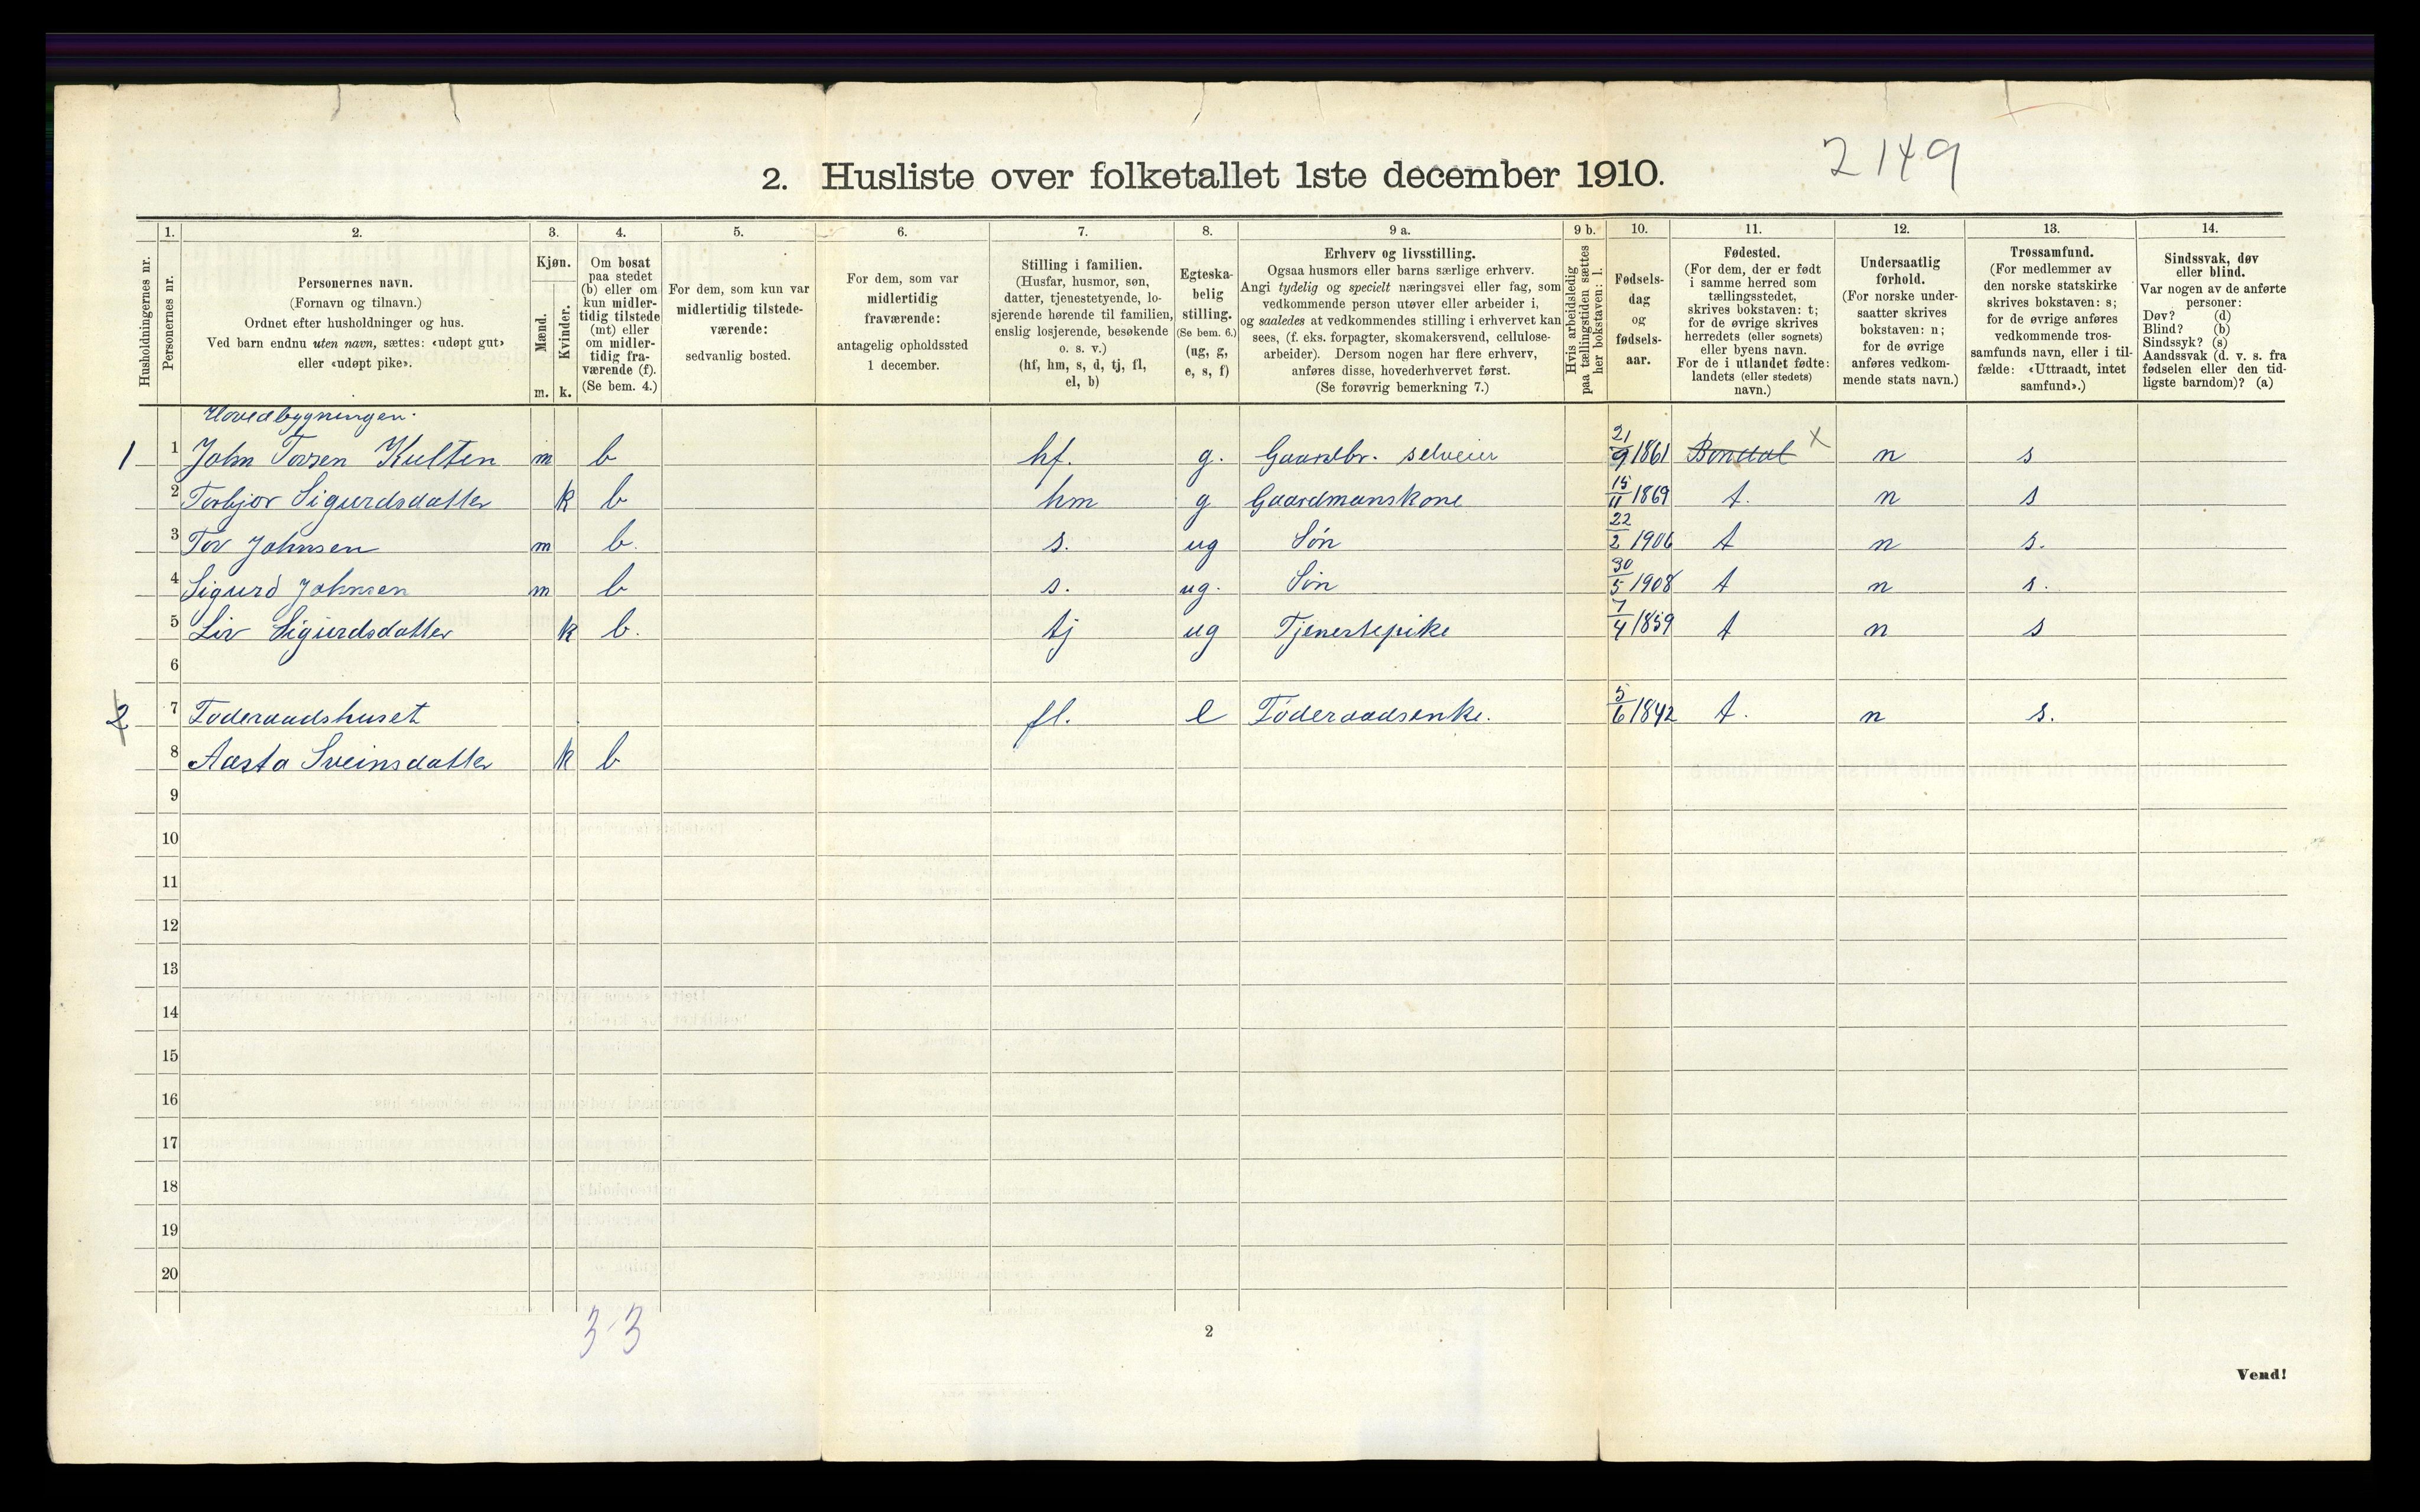 2. Husliste over folketallet 1ste december 1910.
2149
Husholdningernes nr.
1.
Personernes nr.
2.
Personernes navn.
(Fornavn og tilnavn.)
Ordnet efter husholdninger og hus.
Ved barn endnu uten navn, sættes: «udøpt gut»
eller «udøpt pike».
3.
Kjøn.
Mænd.
m.
Kvinder.
k.
4.
Om bosat
paa stedet
(b) eller om
kun midler-
tidig tilstede
(mt) eller
om midler-
tidig fra-
værende (f).
(Se bem. 4.)
5.
For dem, som kun var
midlertidig tilstede-
værende:
sedvanlig bosted.
6.
For dem, som var
midlertidig
fraværende:
antagelig opholdssted
1 december.
7.
Stilling i familien.
(Husfar, husmor, søn,
datter, tjenestetyende, lo-
sjerende hørende til familien,
enslig losjerende, besøkende
o. s. v.)
(hf, hm, s, d, tj, fl,
el, b)
8.
Egteska-
belig
stilling.
(Se bem. 6.)
(ug, g,
e, s, f)
9 a.
Erhverv og livsstilling.
Ogsaa husmors eller barns særlige erhverv.
Angi tydelig og specielt næringsvei eller fag, som
vedkommende person utøver eller arbeider i,
og saaledes at vedkommendes stilling i erhvervet kan
sees, (f. eks. forpagter, skomakersvend, cellulose-
arbeider). Dersom nogen har flere erhverv,
anføres disse, hovederhvervet først.
(Se forøvrig bemerkning 7.)
9 b.
Hvis arbeidsledig
paa tællingstiden sættes
her bokstaven: l.
10.
Fødsels-
dag
og
fødsels-
aar.
11.
Fødested.
(For dem, der er født
i samme herred som
tællingsstedet,
skrives bokstaven: t;
for de øvrige skrives
herredets (eller sognets)
eller byens navn.
For de i utlandet fødte:
landets (eller stedets)
navn.)
12.
Undersaatlig
forhold.
(For norske under-
saatter skrives
bokstaven: n;
for de øvrige
anføres vedkom-
mende stats navn.)
13.
Trossamfund.
(For medlemmer av
den norske statskirke
skrives bokstaven: s;
for de øvrige anføres
vedkommende tros-
samfunds navn, eller i til-
fælde: «Uttraadt, intet
samfund».)
14.
Sindssvak, døv
eller blind.
Var nogen av de anførte
personer:
Døv? (d)
Blind? (b)
Sindssyk? (s)
Aandssvak (d. v. s. fra
fødselen eller den tid-
ligste barndom)? (a)
Hovedbygningen.
1 1 John Torsen Kulten m b hf. g. Gaardbr. selveier 21/9 1861 Bondal x n s
2 Torbjør Sigurdsdatter k b hm g Gaardmanskone 15/11 1869 t. n s
3 Tov Johnsen m b. s. ug Søn 22/2 1906 t n s.
4 Sigurd Johnsen m b s. ug. Søn 30/5 1908 t n s.
5 Liv Sigurdsdatter k b. tj ug Tjenestepike 7/4 1859 t n s
6
2 7 Føderaadshuset fl. e Føderaadsenke. 5/6 1842 t. n s.
8 Aasta Sveinsdatter k b
9
10
11
12
13
14
15
16
17
18
19
20
3-3
2
Vend!